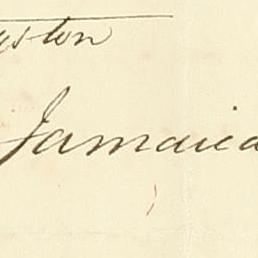 gston
Jamaica